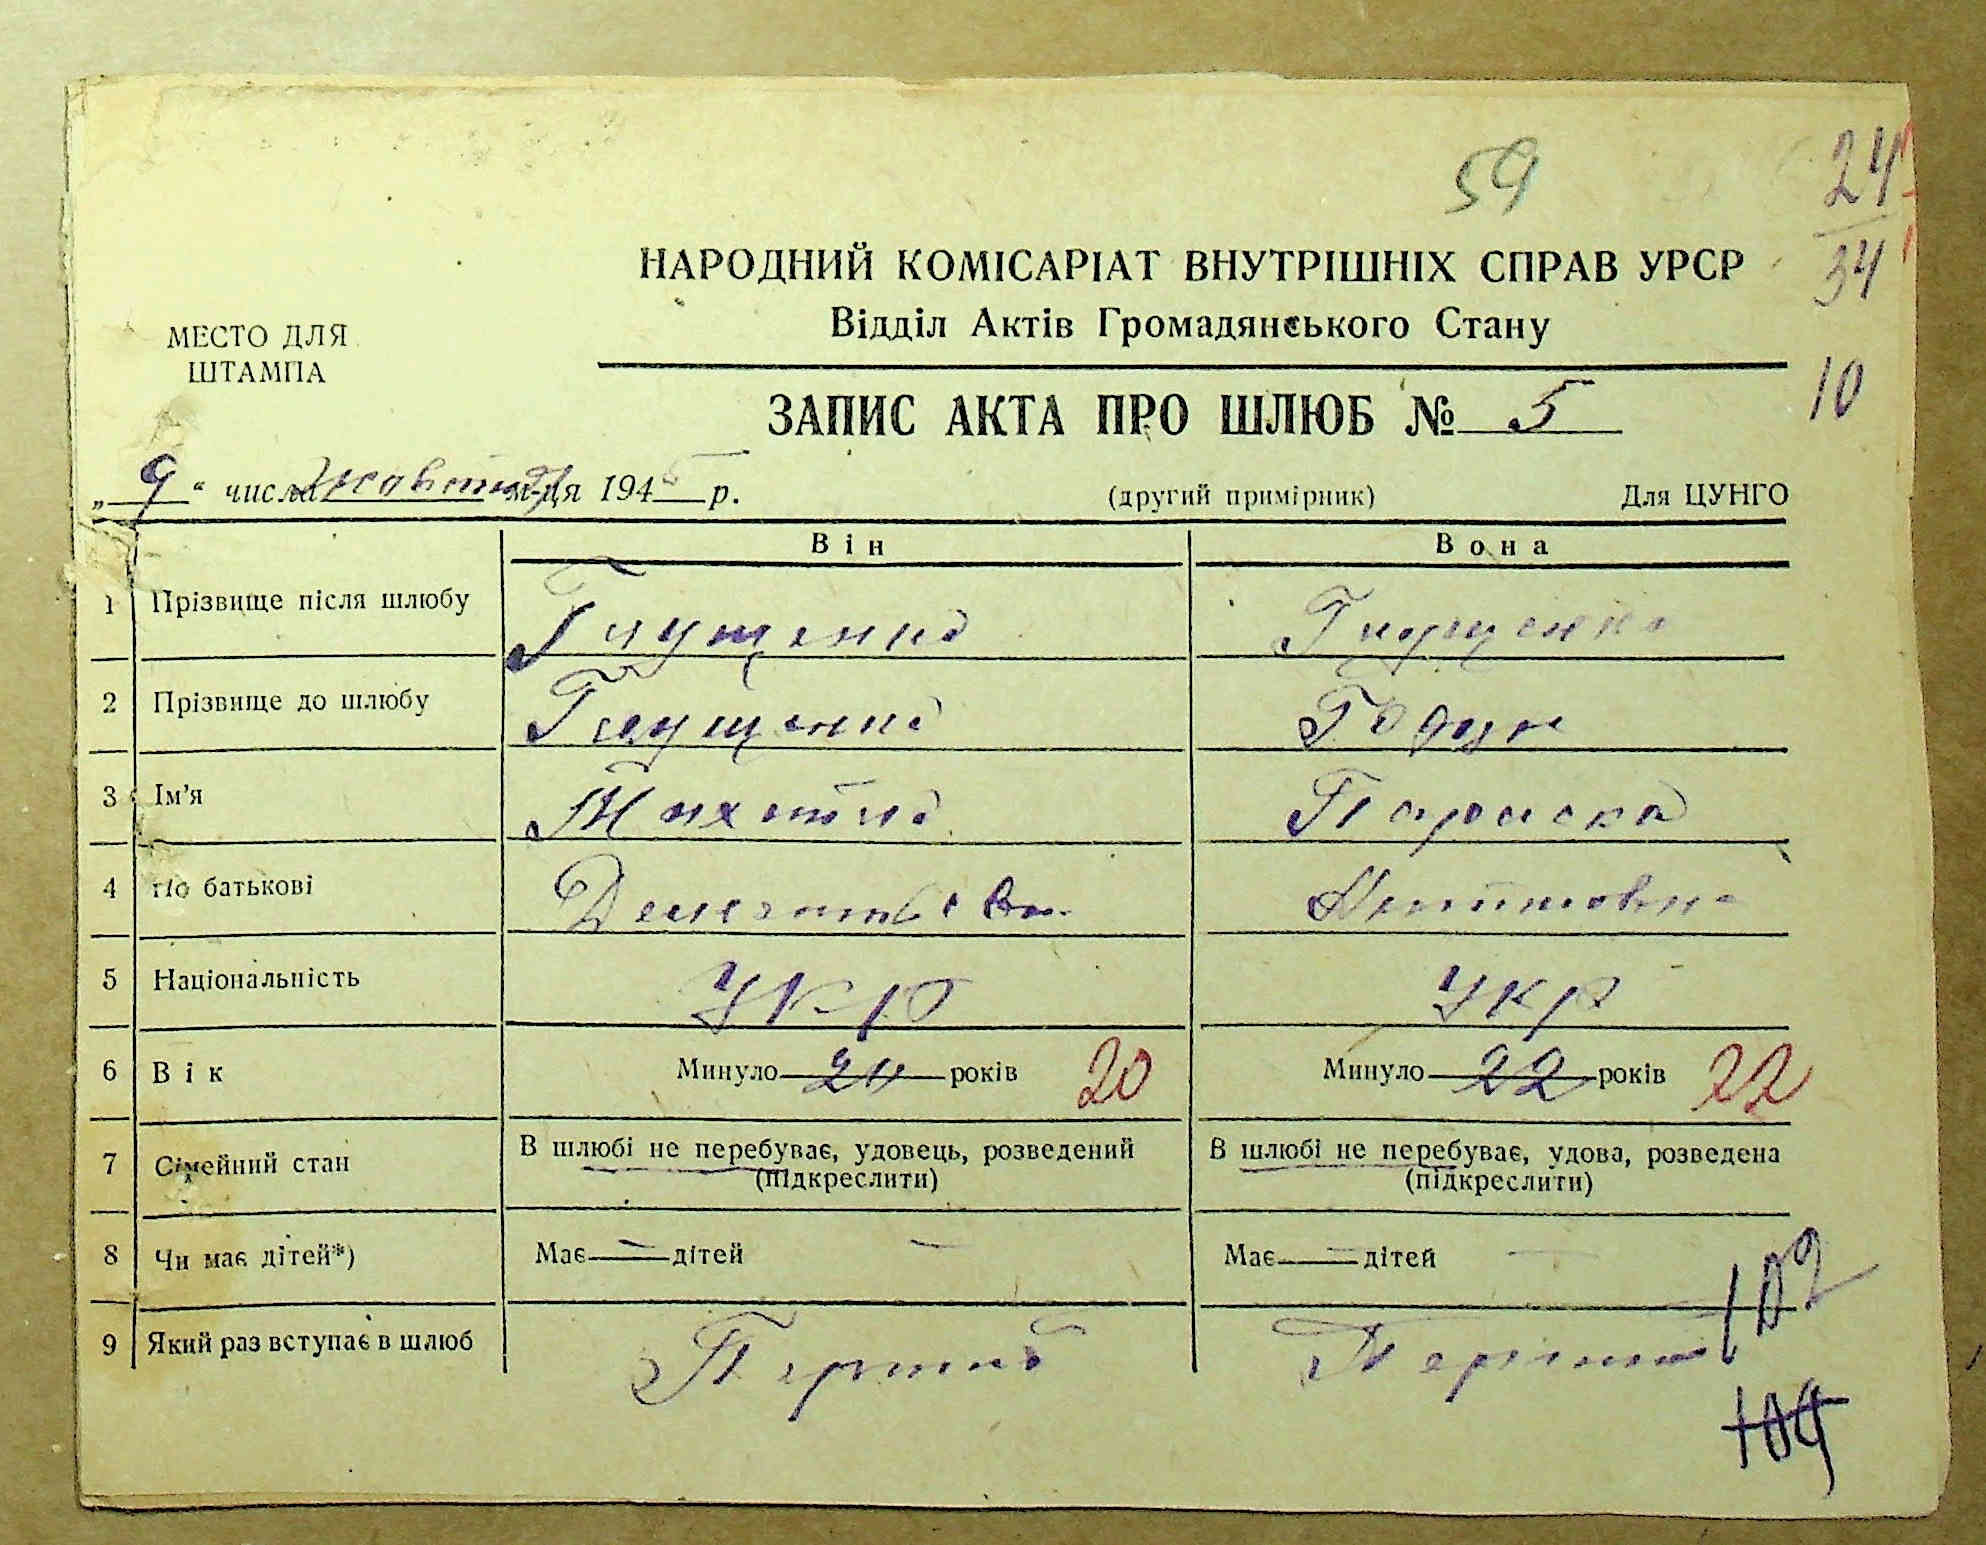 59
24
34
НАРОДНИЙ КОМІСАРІАТ ВНУТРІШНІХ СПРАВ УРСР
Відділ Актів Громадянського Стану
МЕСТО ДЛЯ
ШТАМПА
10
ЗАПИС АКТА ПРО ШЛЮБ № 5
„9“ числа жовтня м-ця 1945 р.
(другий примірник) Для ЦУНГО
Він Вона
1 Прізвище після шлюбу Глущенко Глущенко
2 Прізвище до шлюбу Глущенко Годун
3 Ім’я Параска
4 По батькові
5 Національність УКР УКР
6 Вік Минуло 24 років 20 Минуло 22 років 22
7 Сімейний стан В шлюбі не перебуває, удовець, розведений В шлюбі не перебуває, удова, розведена
(підкреслити) (підкреслити)
8 Чи має дітей*) Має — дітей — Має — дітей —
102
9 Який раз вступає в шлюб Перший
104